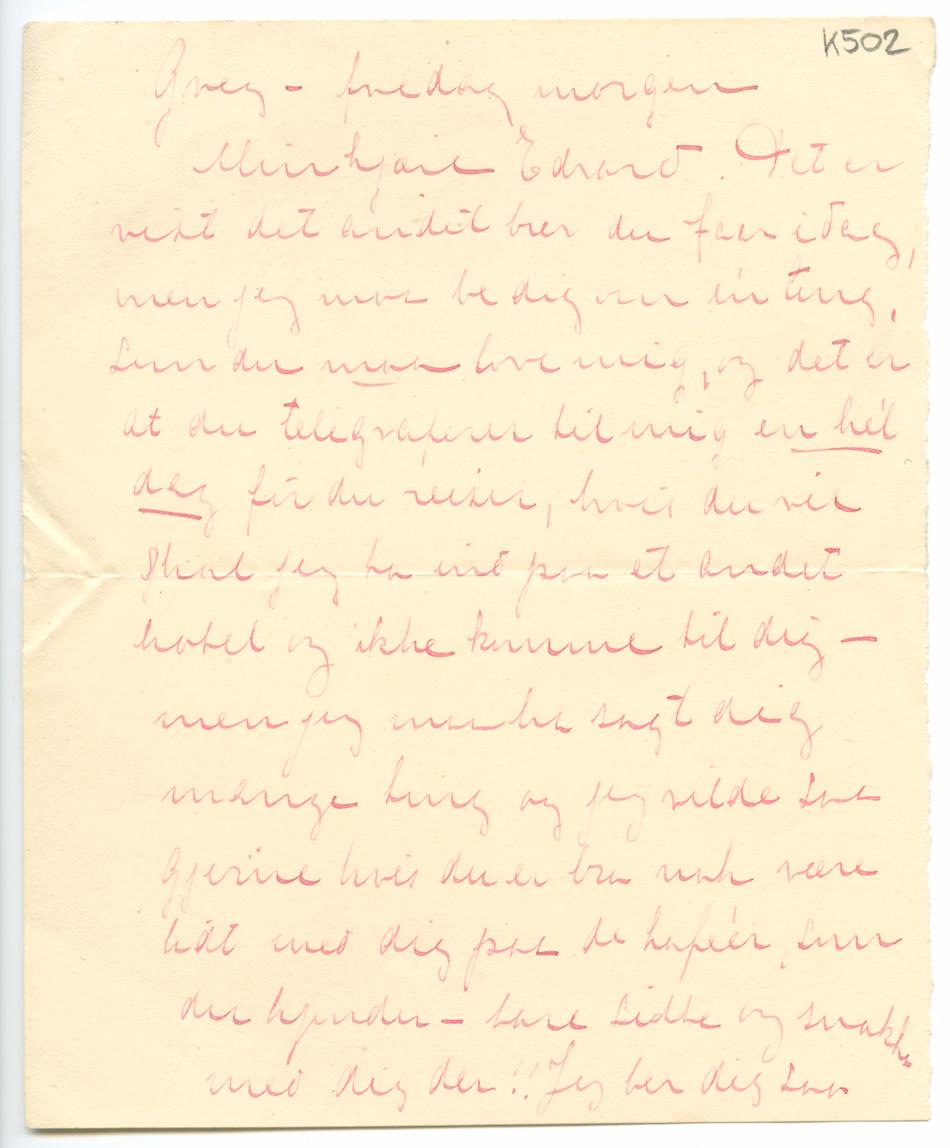 K502
– fredag morgen
Min kjære Edvard. Det er
vist det andet brev du faar idag,
men jeg maa be dig om én ting,
som du maa love mig, og det er
at du telegraferer til mig en hél
dag før du reiser, hvis du vil
skal jeg ta ind paa et andet
hotel og ikke komme til dig –
men jeg maa ha sagt dig
mange ting og jeg vilde saa
gjerne hvis du er bra nok være
lidt med dig paa de kaféer, som
du kjender – bare sidde og snakke
med dig der!! Jeg ber dig saa